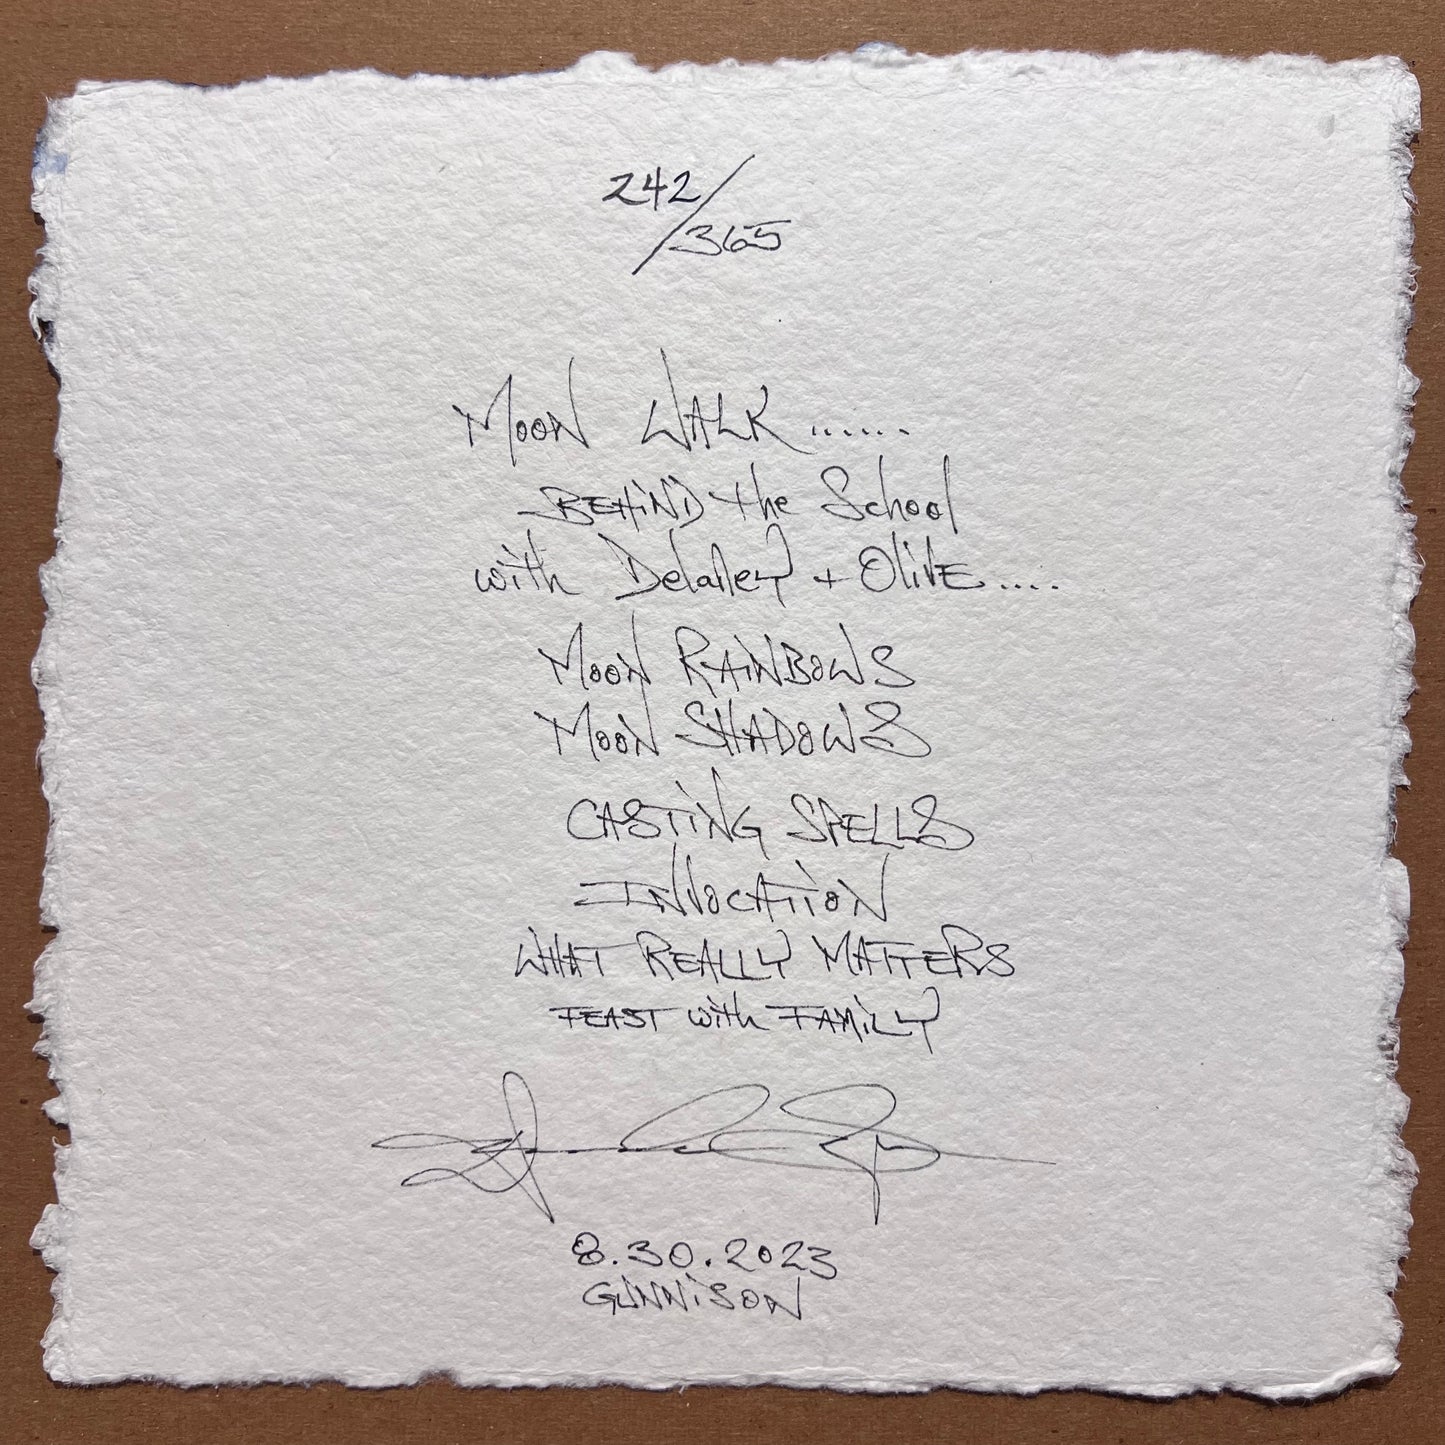 242/365
MOON WALK......
BEHIND the School
with Delaney + OliVE....
MOON RAINBOWS
MOON SHADOWS
CASTING SPELLS
INVOCATION
WHAT REALLY MATTERS
FEAST with FAMILY
8.30.2023
GUNNISON